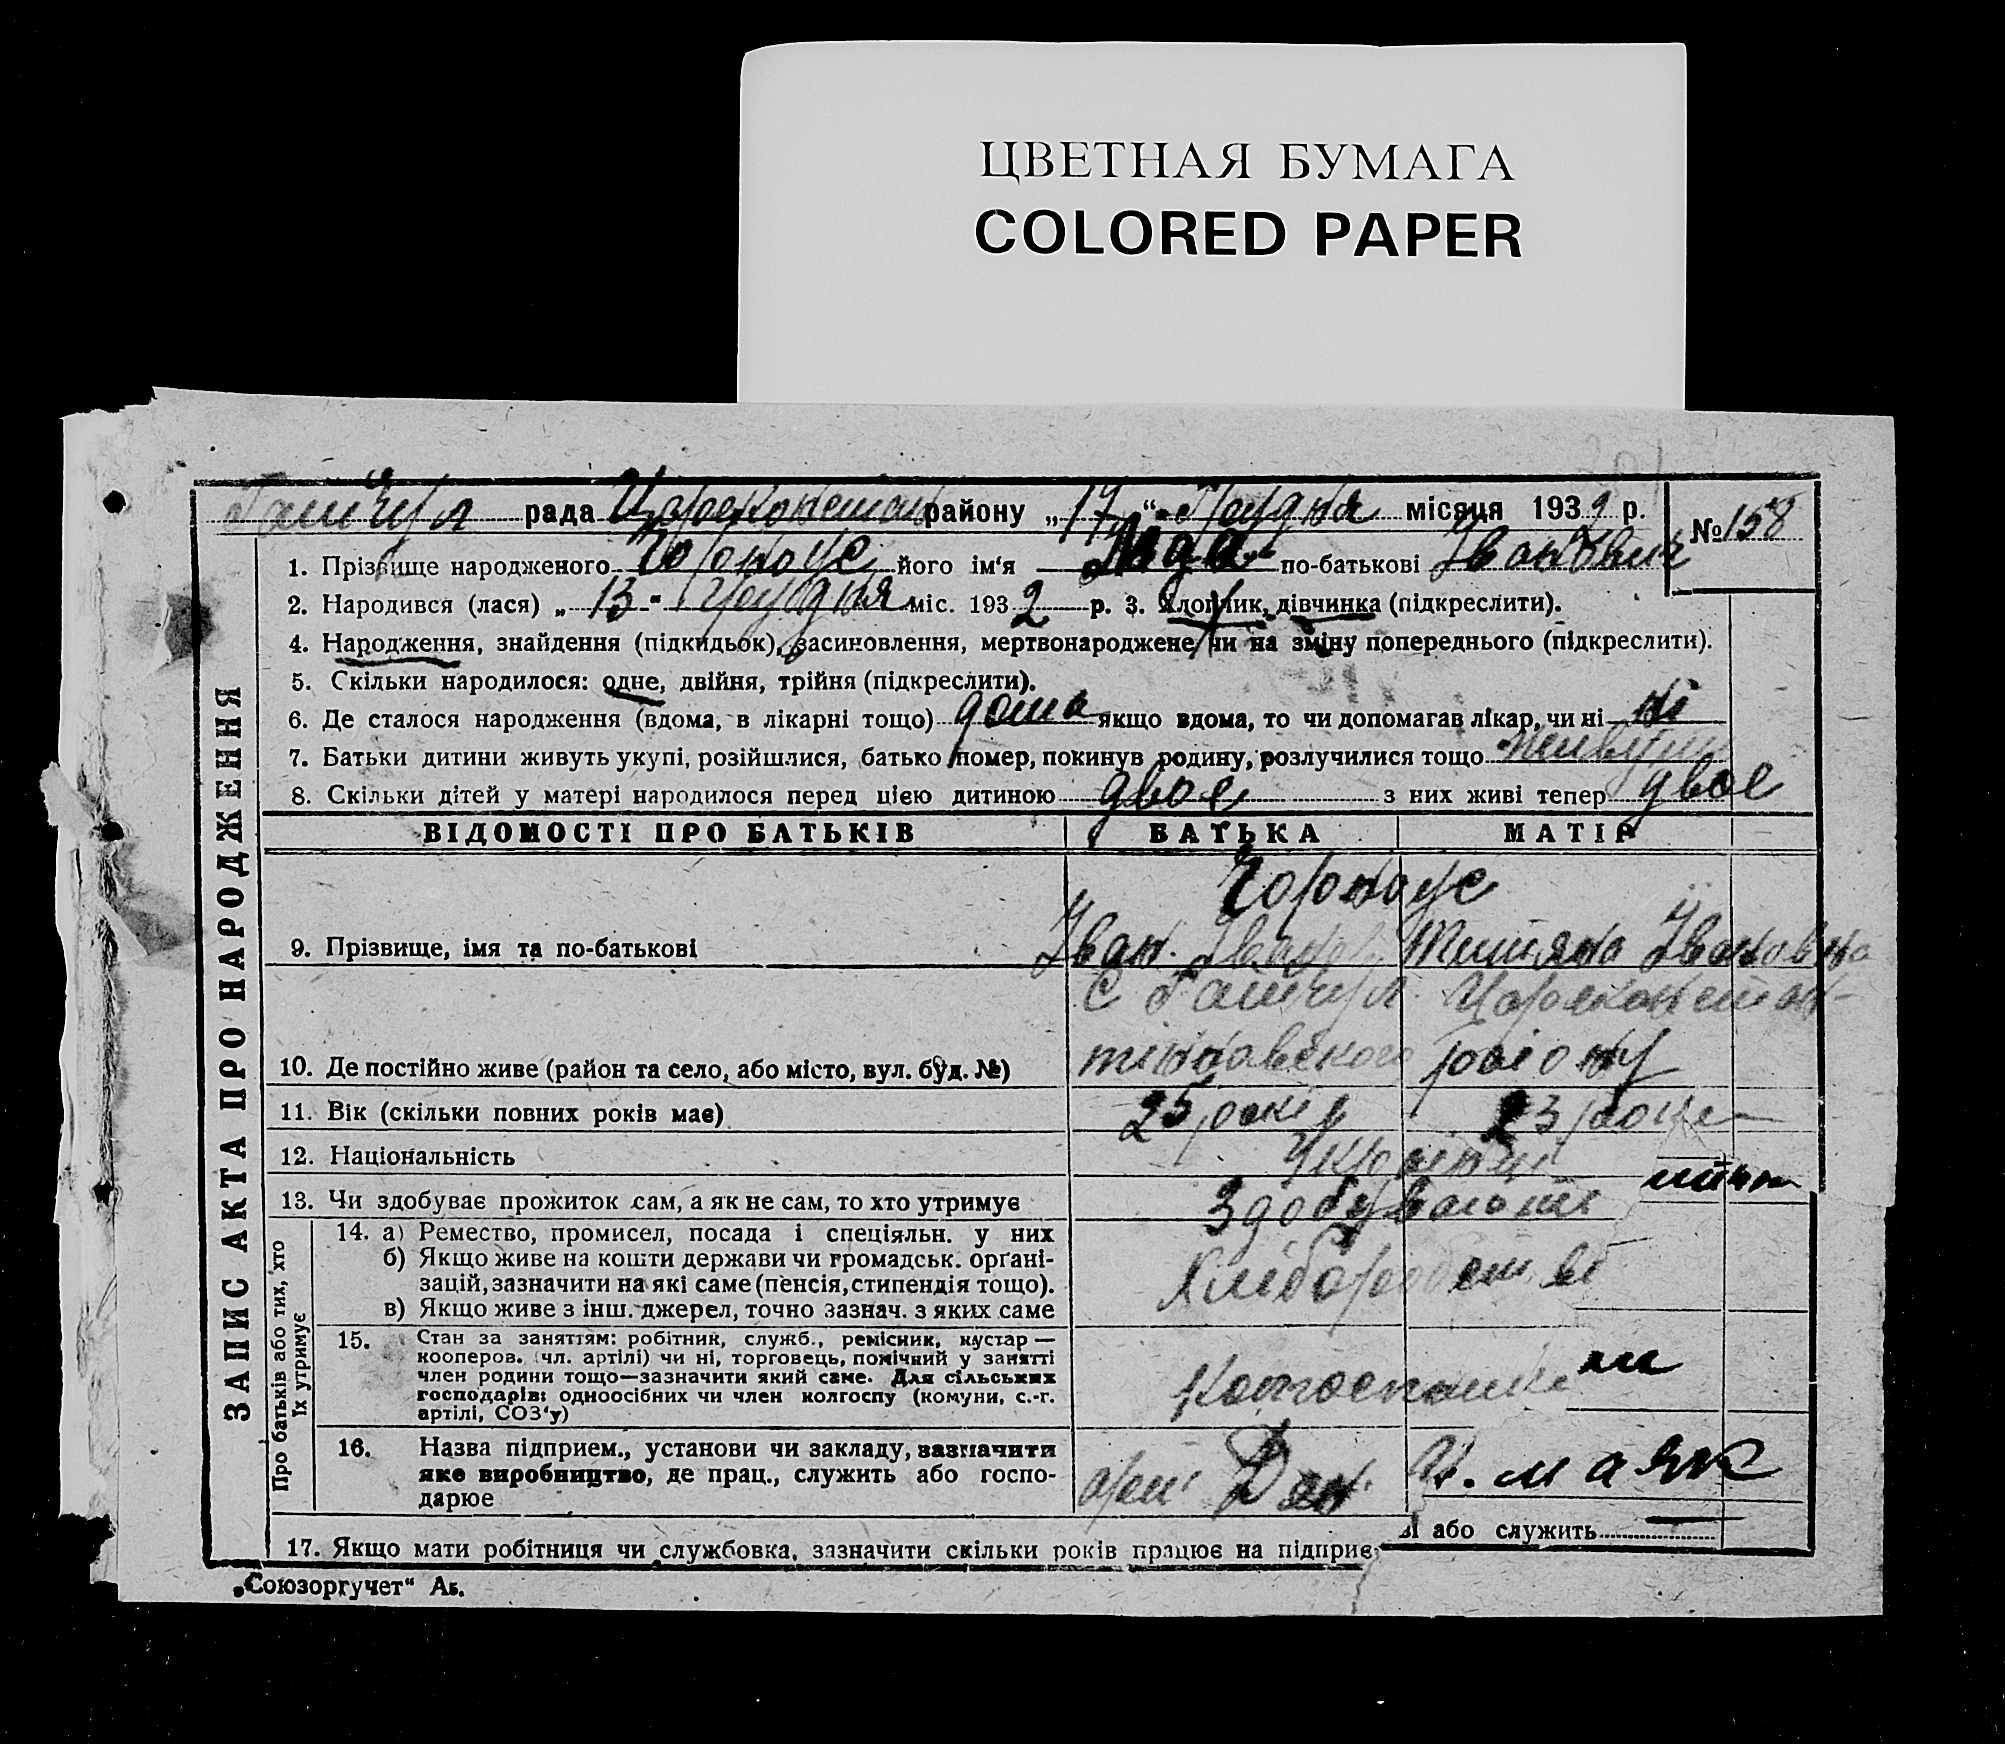 ЦВЕТНАЯ БУМАГА
COLORED PAPER
рада району „17“ Грудня місяця 1932 р.
№ 158
1. Прізвище народженого Чорноус його ім‘я по-батькові Іванович
2. Народився (лася) „13“ Грудня міс. 1932 р. 3. Хлопчик, дівчинка (підкреслити).
4. Народження, знайдення (підкидьок), засиновлення, мертвонароджене чи на зміну попереднього (підкреслити).
5. Скільки народилося: одне, двійня, трійня (підкреслити).
6. Де сталося народження (вдома, в лікарні тощо) дома якщо вдома, то чи допомагав лікар, чи ні ні
7. Батьки дитини живуть укупі, розійшлися, батько помер, покинув родину, розлучилися тощо живуть
8. Скільки дітей у матері народилося перед цією дитиною двоє з них живі тепер двоє
ВІДОМОСТІ ПРО БАТЬКІВ БАТЬКА МАТІР
Чорноус
9. Прізвище, імя та по-батькові Іван Іванов Тетяна Івановна
с
10. Де постійно живе (район та село, або місто, вул. буд. №) тінновського району
11. Вік (скільки повних років має) 25 років 23 роки
12. Національність Українці
13. Чи здобуває прожиток сам, а як не сам, то хто утримує Здобувають
14. а) Ремество, промисел, посада і спеціяльн. у них
б) Якщо живе на кошти держави чи громадськ. орґані-
зацій, зазначити на які саме (пенсія, стипендія тощо).
в) Якщо живе з інш. джерел, точно зазнач. з яких саме
Хліборобств
15. Стан за заняттям: робітник, служб., ремісник, кустар —
кооперов. (чл. артілі) чи ні, торговець, помічний у занятті
член родини тощо—зазначити який саме. Для сільських
господарів: одноосібних чи член колгоспу (комуни, с.-г.
артілі, СОЗ‘у)
16. Назва підприєм., установи чи закладу, зазначити
яке виробництво, де прац., служить або госпо-
дарює
арт. маяк
17. Якщо мати робітниця чи службовка, зазначити скільки років працює на підприє
ві або служить —
ЗАПИС АКТА ПРО НАРОДЖЕННЯ
Про батьків або тих, хто
їх утримує
„Союзоргучет“ Ав.